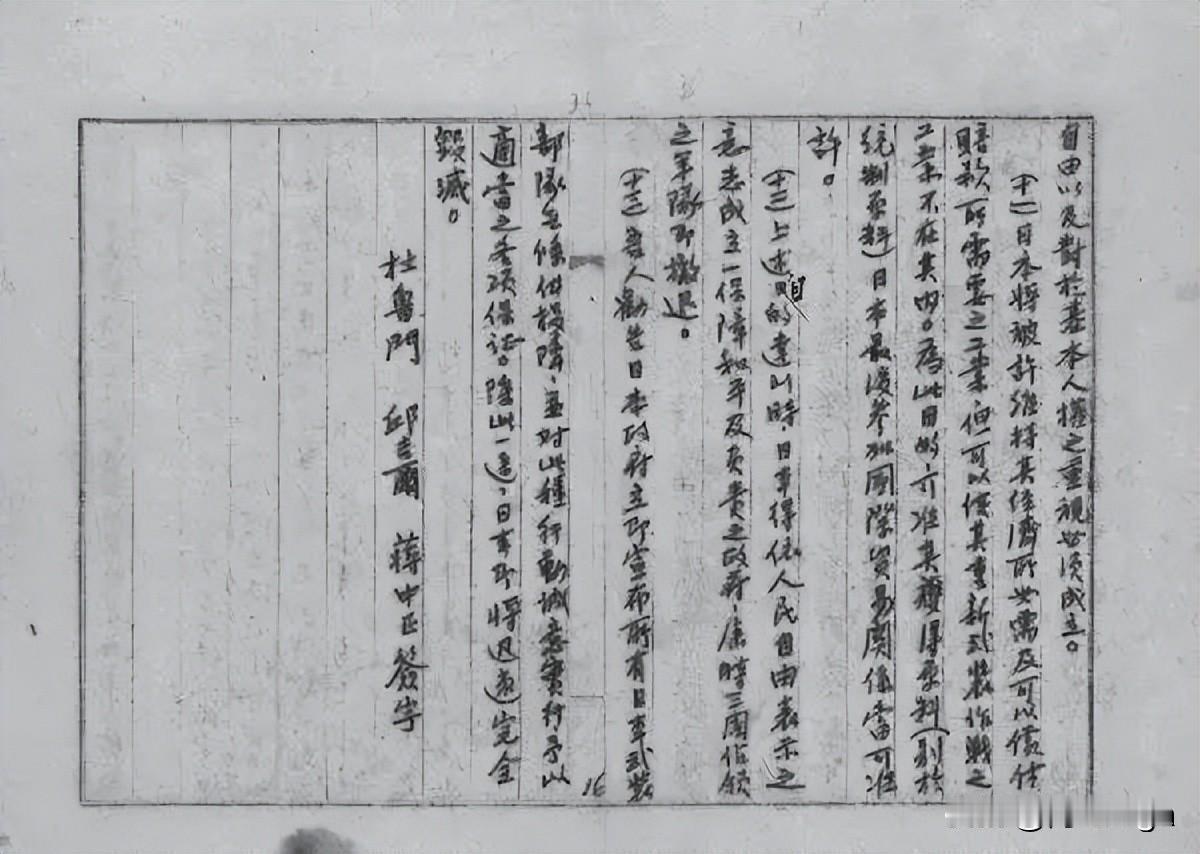 自由以及對於基本人權之重視必須成立。
(十一)日本將被許維持其經濟所必需及可以償付
賠款所需要之工業,但可以使其重新武裝作戰之
工業不在其內。為此目的,亦准其獲得原料(別於
統制原料)日本最後參加國際貿易關係當可准
許。
(十二)上述目的達到時日本得依人民自由表示之
意志成立一保障和平及負責之政府,屆時三國佔領
之軍隊即撤退。
(十三)吾人勸告日本政府立即宣布所有日本武裝
部隊無條件投降,並對此種行動誠意實行予以
適當之各項保證。除此一途,日本即將迅速完全
毀滅。
杜魯門 邱吉爾 蔣中正 簽字
16